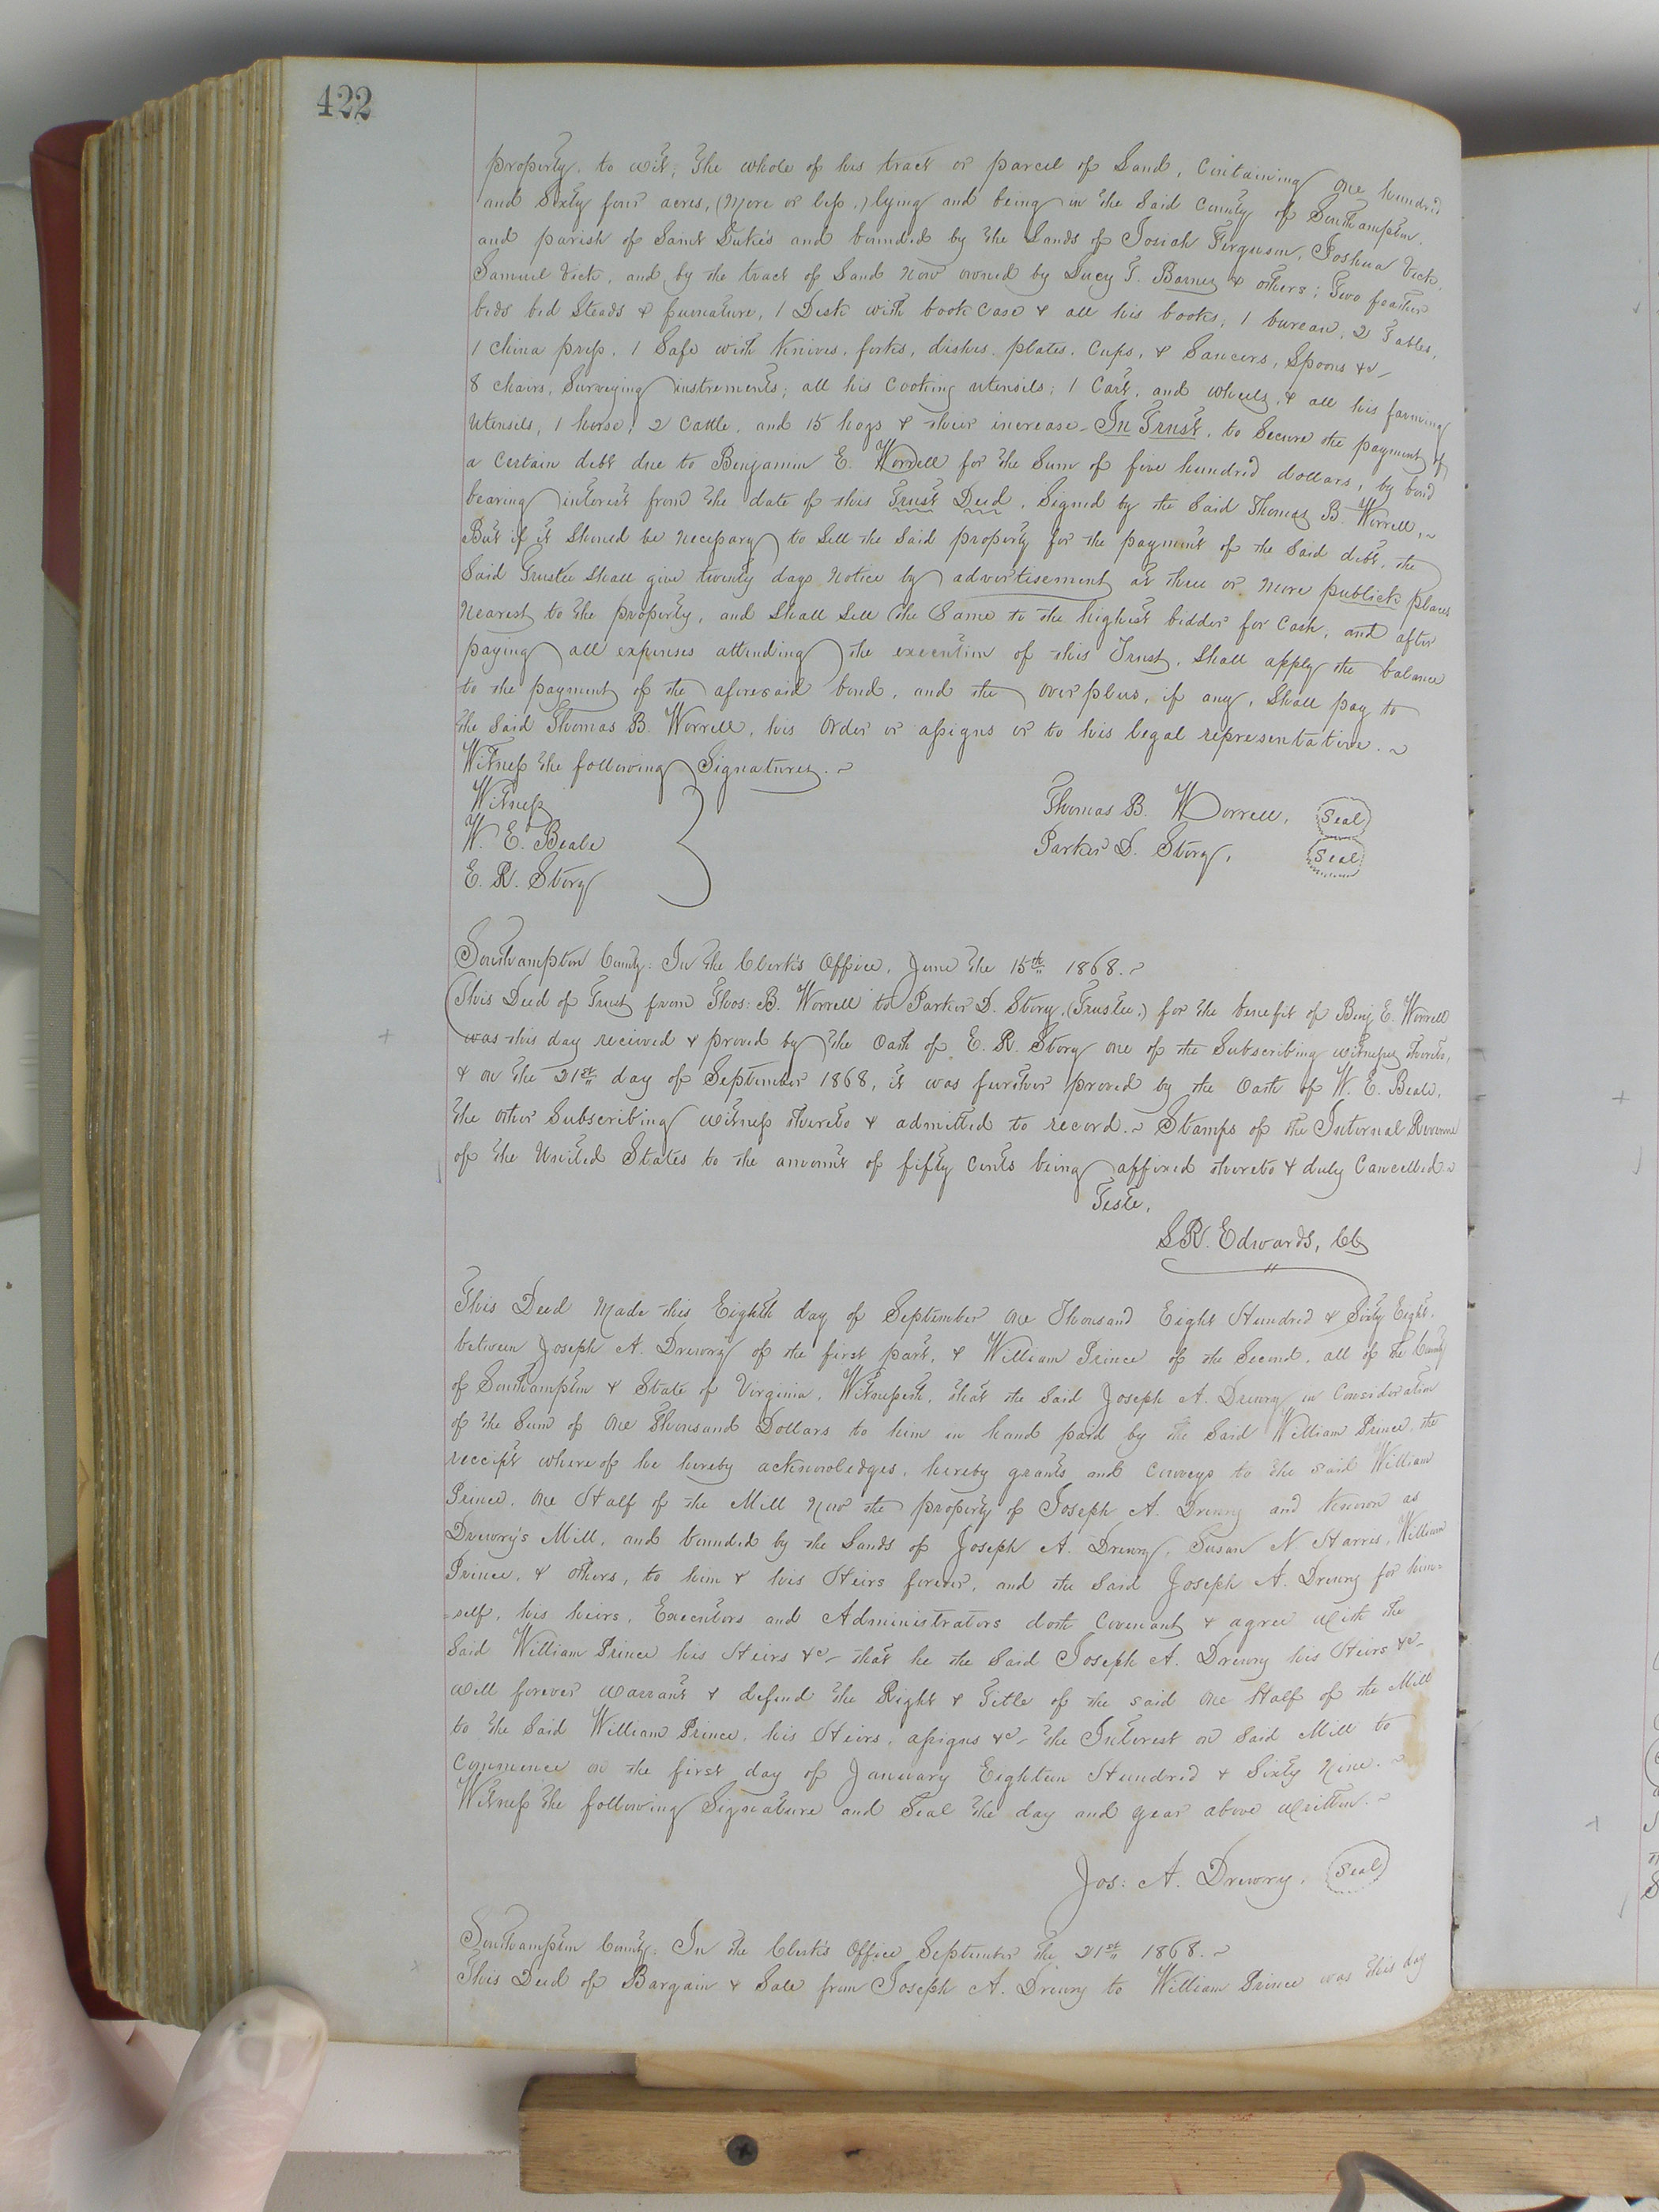 422
property, to wit; The whole of his tract or parcel of Land, Containing one hundred
and Sixty four acres, (More or less,) lying and being in the Said County of Southampton,
and parish of Saint Luke's and bounded by the Lands of Josiah Ferguson, Joshua Vick,
Samuel Vick, and by the tract of Land Now owned by Lucy T. Barnes & others; Two feather
beds bed Steads & furnature, 1 Desk with book Case & all his books, 1 bureau, 2 Tables,
1 China press, 1 Safe with Knives, forks, dishes, plates, Cups, & Saucers, Spoons &c
8 chairs, Surveying instrements; all his Cooking utensils; 1 Cart, and wheels, & all his farming
Utensils, 1 horse, 2 Cattle, and 15 hogs & their increase - In Trust, to Secure the payment of
a Certain debt due to Benjamin E. Worrell for the Sum of five hundred dollars, by bond
bearing interest from the date of this Trust Deed, Signed by the Said Thomas B. Worrell, ~
But if it Should be Necessary to Sell the Said property for the payment of the Said debt, the
Said Trustee Shall give twenty days Notice by advertisement at three or More publick places
Nearest to the property, and Shall Sell the Same to the highest bidder for Cash, and after
paying all expenses attending the execution of this Trust, Shall apply the balance
to the payment of the aforesaid bond, and the overplus, if any, Shall pay to
the Said Thomas B. Worrell, his Order or assigns or to his legal representative. ~
Witness the following Signatures. ~
Witness
W. E. Beale
E. R. Story
Thomas B. Worrell, Seal
Parker D. Story, Seal
Southampton County: In the Clerk's Office, June the 15th 1868. ~
This Deed of Trust from Thos: B. Worrell to Parker D. Story, (Trustee,) for the benefit of Benj E. Worrell
was this day received & proved by the Oath of E. R. Story one of the Subscribing witnesses thereto,
& on the 21st day of September 1868, it was further proved by the Oath of W. E. Beale,
the other Subscribing Witness thereto & admitted to record. ~ Stamps of the Internal Revenue
of the United States to the amount of fifty Cents being affixed thereto & duly Cancelled. ~
Teste,
L R. Edwards, CC
This Deed Made this Eighth day of September One Thousand Eight Hundred & Sixty Eight,
between Joseph A. Drewry of the first part, & William Prince of the Second, all of the County
of Southampton & State of Virginia, Witnesseth, that the Said Joseph A. Drewry in Consideration
of the Sum of One Thousand Dollars to him in hand paid by the Said William Prince, the
receipt whereof he hereby acknowledges, hereby grants and Conveys to the said William
Prince, One Half of the Mill Now the property of Joseph A. Drewry and Known as
Drewry's Mill, and bounded by the Lands of Joseph A. Drewry, Susan N Harris, William
Prince, & others, to him & his Heirs forever, and the Said Joseph A. Drewry for him=
=self, his heirs, Executors and Administrators doth Covenant & agree With the
Said William Prince his Heirs &c - that he the Said Joseph A. Drewry his Heirs &c -
Will forever Warrant & defend the Right & Title of the said One Half of the Mill
to the Said William Prince, his Heirs, assigns &c - the Interest on Said Mill to
Commence on the first day of January Eighteen Hundred & Sixty Nine. ~
Witness the following Signature and Seal the day and year above Written. ~
Jos: A. Drewry, Seal
Southampton County: In the Clerk's Office September the 21st 1868. ~
This Deed of Bargain & Sale from Joseph A. Drewry to William Prince was this day